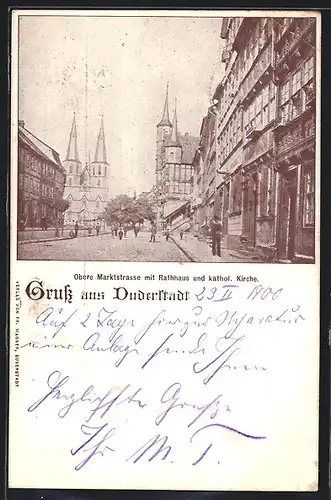 Obere Marktstrasse mit Rathhaus und kathol. Kirche.
Gruß aus Duderstadt 23 II 1900
Auf 2 Tage hier zur Reparatur
einer Anlage sende Ihnen
herzlichste Grüße
Ihr M. T.
VERLAG VON FR. WAGNER, DUDERSTADT